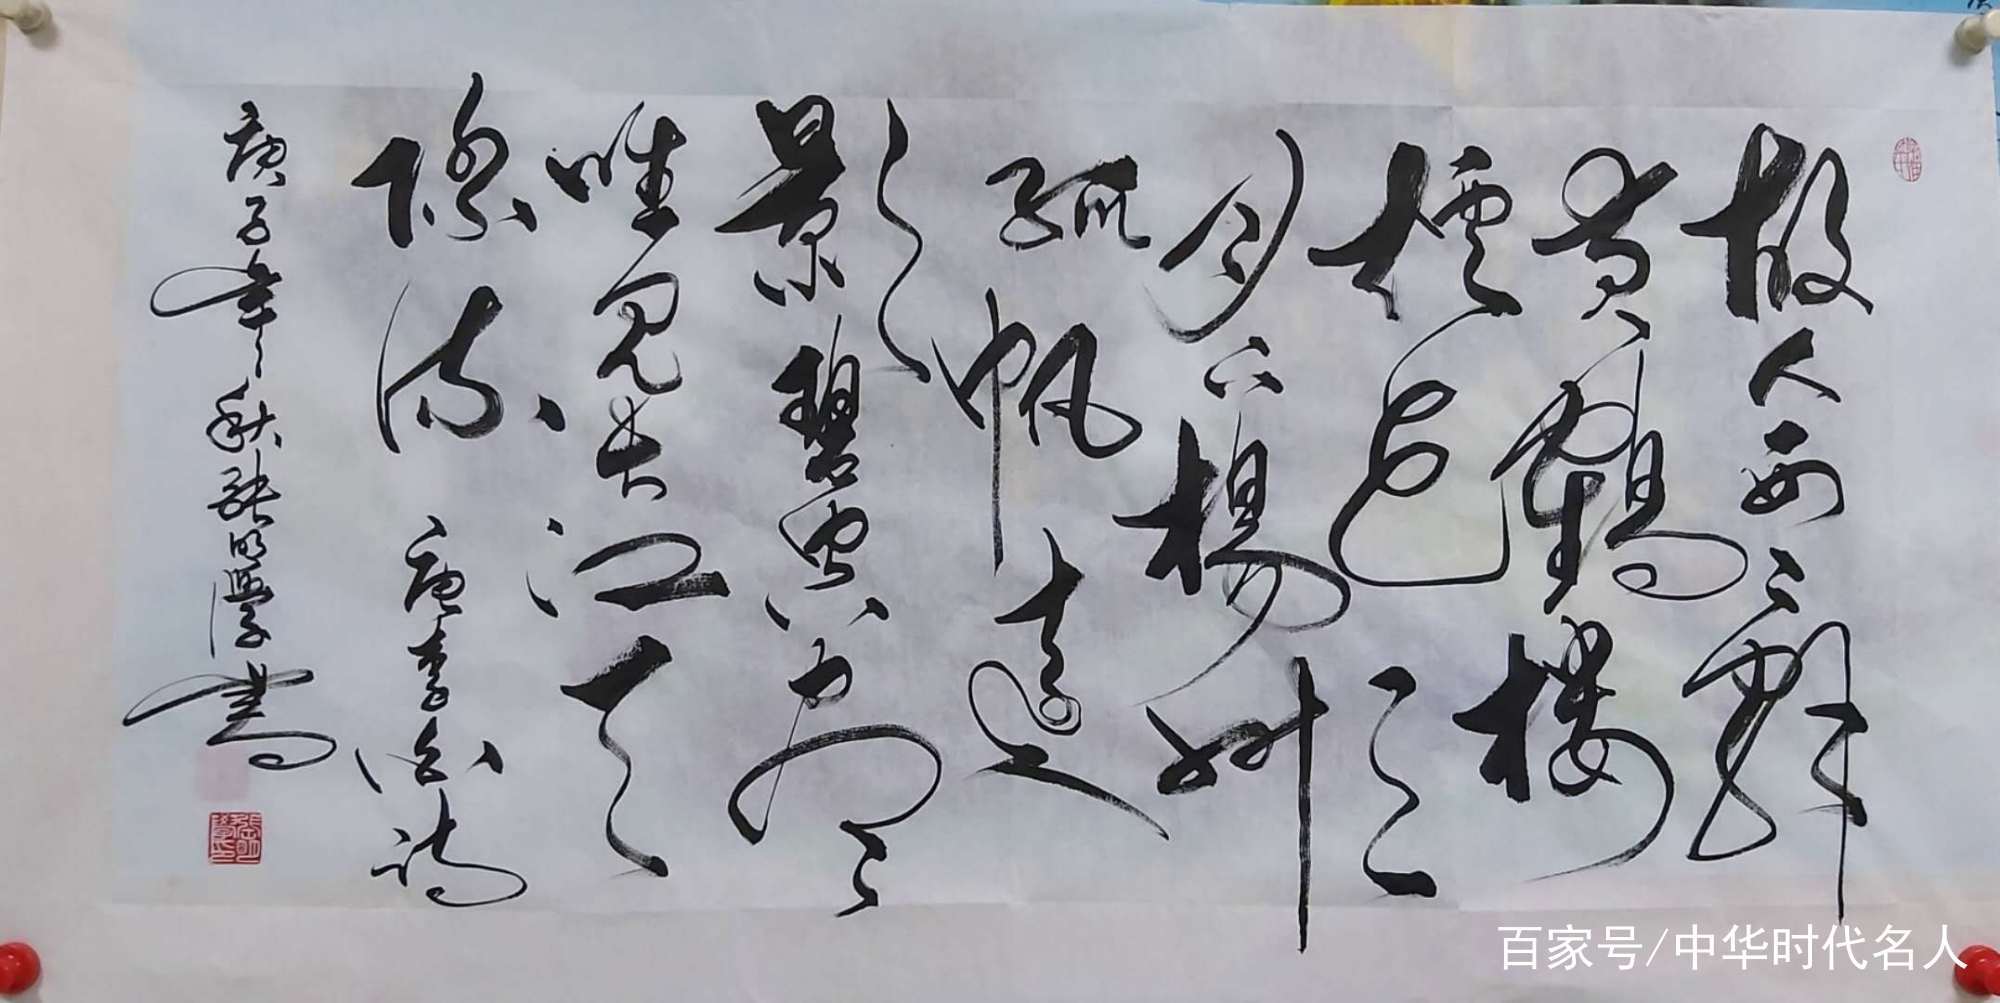 故人西辭
黃鶴樓
煙花三
月下揚州
孤帆遠
影碧空盡
唯見長江天
際流 唐李白詩
庚子年秋張明學書
張明學印
百家号/中华时代名人